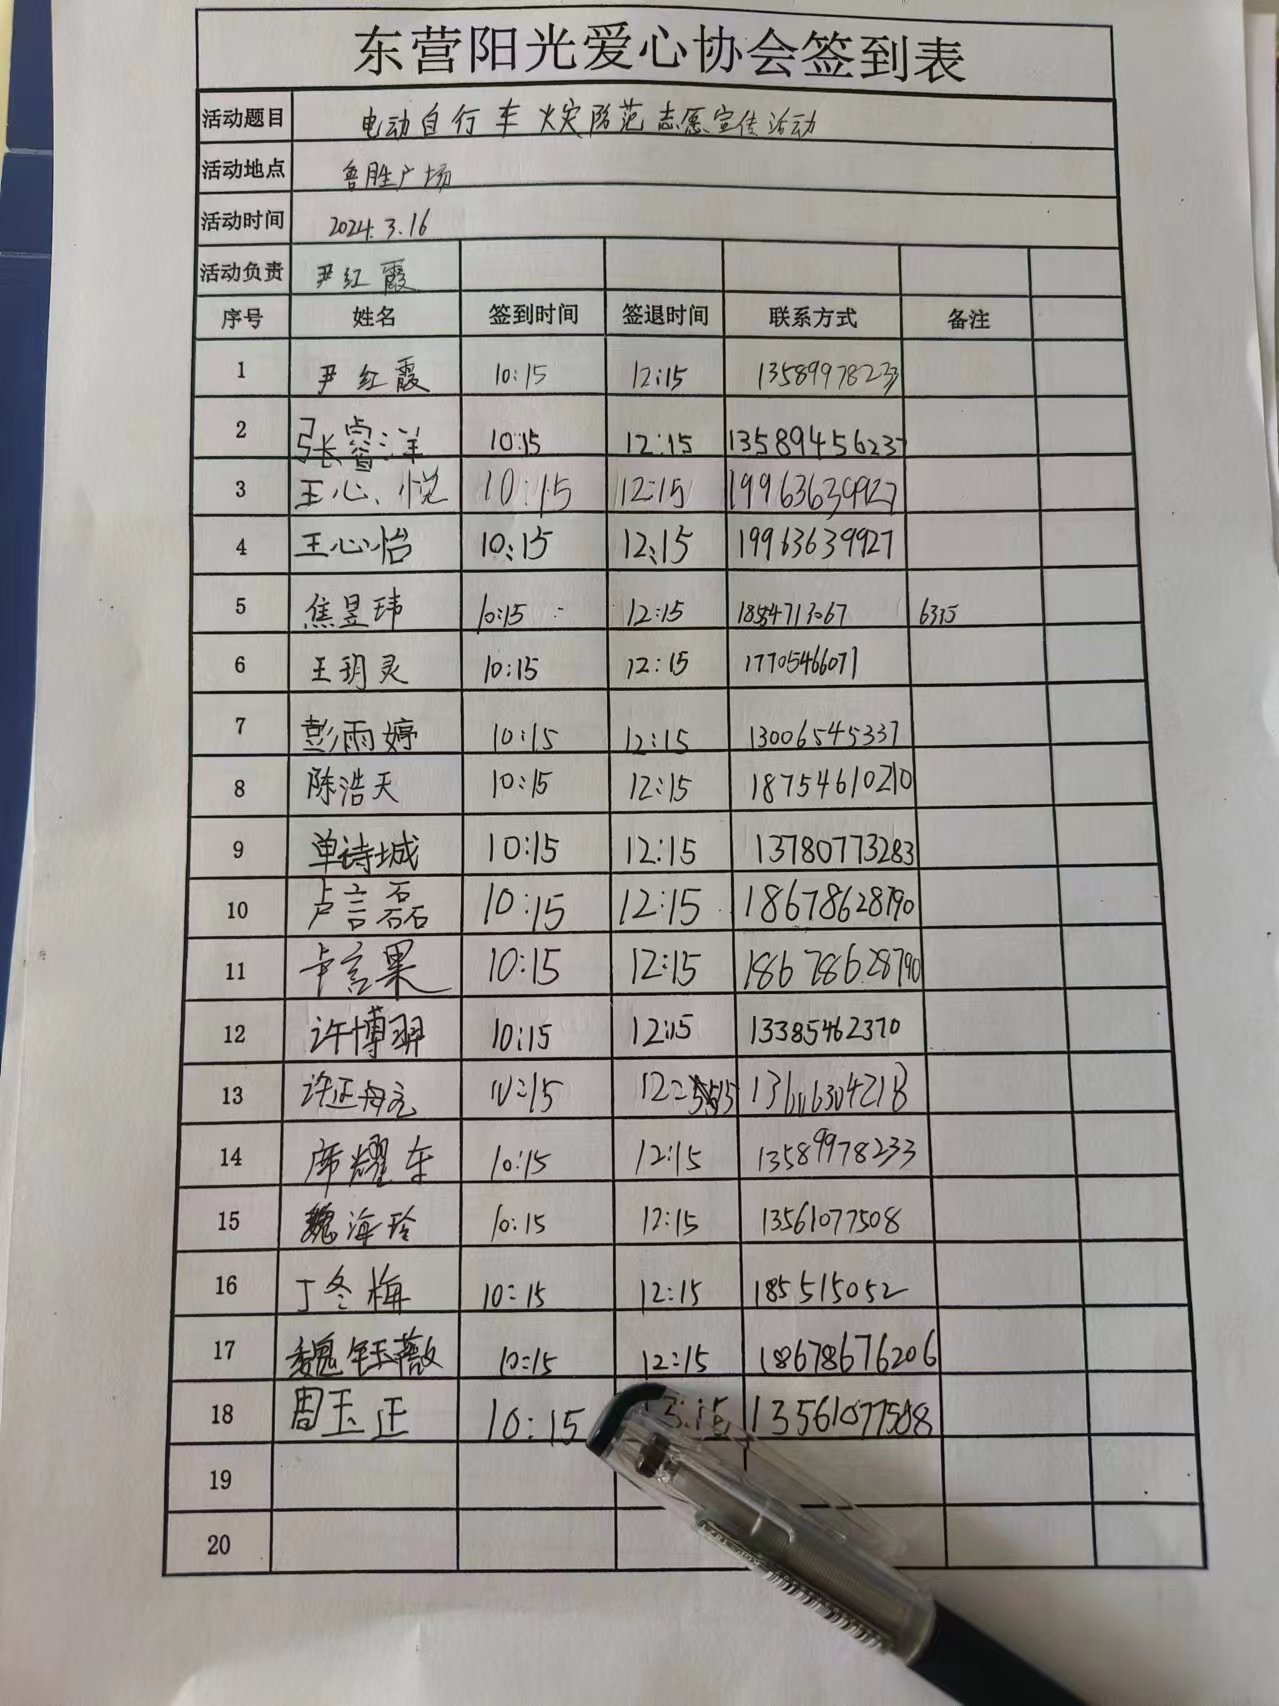 东营阳光爱心协会签到表
活动题目 电动自行车火灾防范志愿宣传活动
活动地点 鲁胜广场
活动时间 2024.3.16
活动负责 尹红霞
序号 姓名 签到时间 签退时间 联系方式 备注
1 尹红霞 10:15 12:15 13589978233
2 张睿洋 10:15 12:15 13589456237
3 王心悦 10:15 12:15 19963639927
4 王心怡 10:15 12:15 19963639927
5 焦昱玮 10:15 12:15 6335
6 王玥灵 10:15 12:15 17705466071
7 彭雨婷 10:15 12:15 13006545337
8 陈浩天 10:15 12:15 18754610210
9 单诗城 10:15 12:15 13780773283
10 卢言磊 10:15 12:15 18678628790
11 卢言果 10:15 12:15 18678628790
12 许博羿 10:15 12:15 13385462370
13 10:15
14 席耀东 10:15 12:15 13589978233
15 魏海珍 10:15 12:15 13561077508
16 丁冬梅 10:15 12:15 185515052
17 魏钰薇 10:15 12:15 18678676206
18 周玉正 10:15 13561077508
19
20